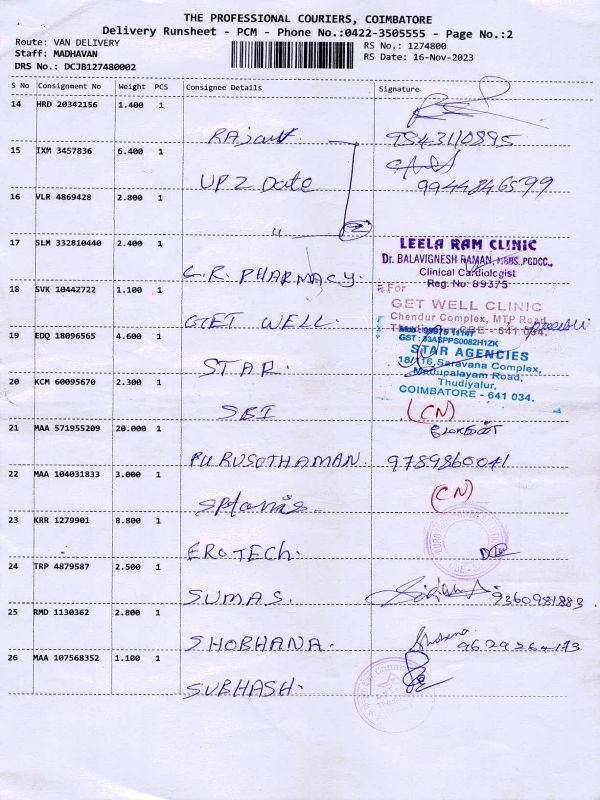 THE PROFESSIONAL COURIERS, COIMBATORE
Delivery Runsheet - PCM - Phone No.:0422-3505555 - Page No.:2
Route: VAN DELIVERY
RS No.: 1274800
Staff: MADHAVAN
RS Date: 16-Nov-2023
DRS No.: DCJB127480002
S No Consignment No Weight PCS Consignee Details Signature
14 HRD 20342156 1.400 1
7543110895
15 IXM 3457836 6.400 1 UP 2 Date
9944846599
16 VLR 4869428 2.800 1 "
2
17 SLM 332810440 2.400 1 L.R. PHARMACY.
LEELA RAM CLINIC
Dr. BALAVIGNESH RAMAN, MBBS.,PGDCC.,
Clinical Cardiologist
Reg. No: 89375
18 SVK 10442722 1.100 1 GET WELL.
For
GET WELL CLINIC
Chendur Complex, MTP Road,
Thudiyalur, CBE - 641 034.
19 EDQ 18096565 4.600 1 STAR.
GST : 33ASPPS0082H1ZK
STAR AGENCIES
18/116, Saravana Complex,
Mettupalayam Road,
Thudiyalur,
COIMBATORE - 641 034.
20 KCM 60095670 2.300 1 SBI
(CN)
21 MAA 571955209 20.000 1 PURUSOTHAMAN. 9789860041
22 MAA 104031833 3.000 1
(CN)
23 KRR 1279901 8.800 1 EROTECH.
24 TRP 4879587 2.500 1 SUMAS. 9360981883.
25 RMD 1130362 2.800 1 SHOBHANA. Shobana 9629364173
26 MAA 107568352 1.100 1 SUBHASH.